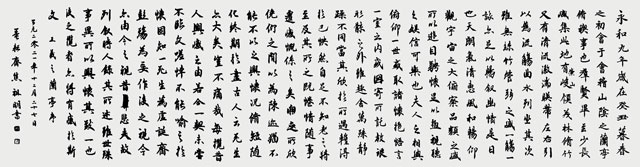 永和九年歲在癸丑暮春
之初會于會稽山陰之蘭亭
脩稧事也羣賢畢至少長
咸集此地有崇山峻領茂林脩竹
又有清流激湍映帶左右引
以為流觴曲水列坐其次
雖無絲竹管弦之盛一觴一
詠亦足以暢敘幽情是日
也天朗氣清惠風和暢仰
觀宇宙之大俯察品類之盛
所以遊目騁懷足以極視聽
之娛信可樂也夫人之相與
俯仰一世或取諸懷抱悟言
一室之內或因寄所託放浪
形骸之外雖趣舍萬殊靜
躁不同當其欣於所遇暫得
於己快然自足不知老之將
至及其所之既惓情隨事
遷感慨係之矣向之所欣
俛仰之間以為陳迹猶不
能不以之興懷況脩短隨
化終期於盡古人云死生
亦大矣豈不痛哉每攬昔
人興感之由若合一契未嘗
不臨文嗟悼不能喻之於
懷固知一死生為虛誕齊
彭殤為妄作後之視今
亦由今之視昔悲夫故
列敘時人錄其所述雖世殊
事異所以興懷其致一也
後之攬者亦將有感於斯
文 王羲之蘭亭序
二零二一年十二月二十七日
齋焦祖明書